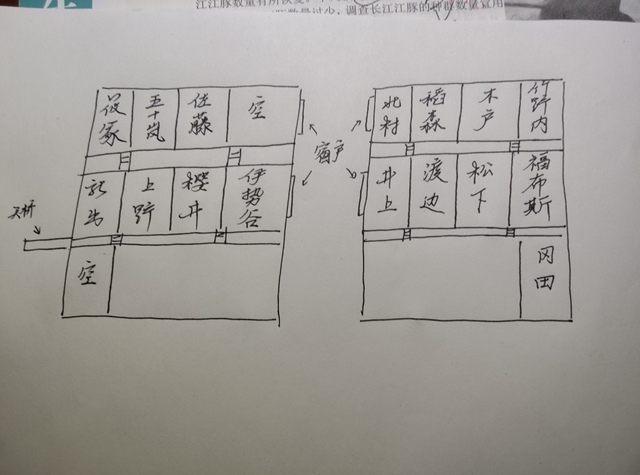 江江豚数量有所恢复。
数量过少，调查长江江豚的种豚数量宜用
筱冢
五十岚
佐藤
空
上野
樱井
伊势谷
空
天桥
窗户
北村
稻森
木户
竹野内
井上
渡边
松下
福布斯
冈田